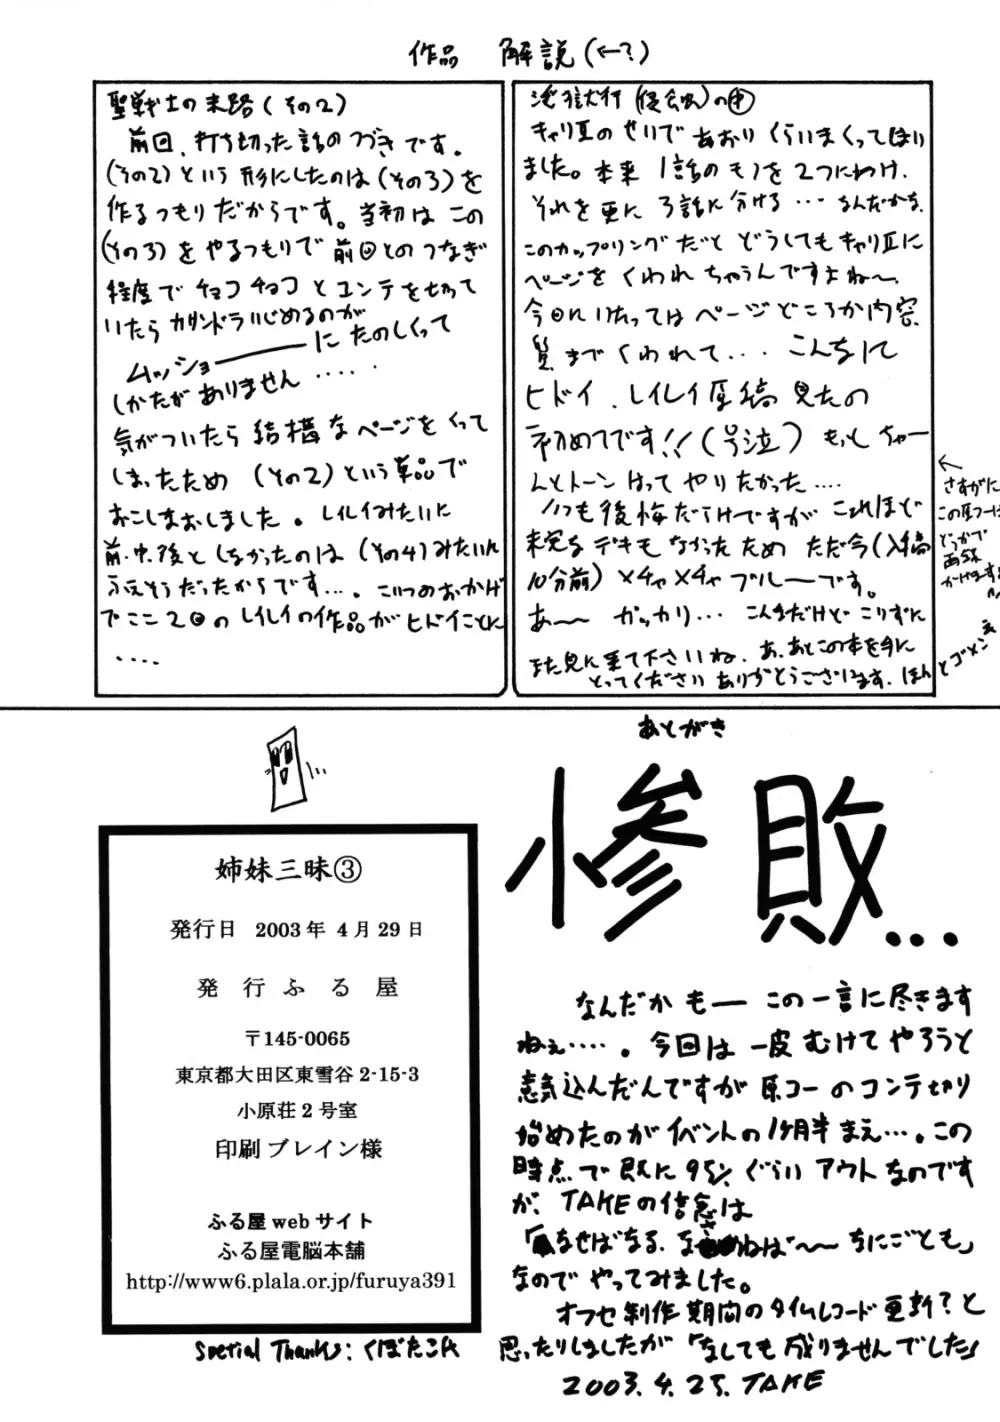 作品 解説(←?)
聖戦士の末路(その2)
前回、打ち切った話のつづきです。
(その2)という形にしたのは(その3)を
作るつもりだからです。当初はこの
(その3)をやるつもりで前回とのつなぎ
程度でチョコチョコとコンテを切って
いたらカサンドラいじめるのが
ムッショーーーーーにたのしくって
しかたがありません.....
気がついたら結構なページをくって
しまったため(その2)という単品で
おこしなおしました。レイレイみたいに
前・中・後としなかったのは(その4)みたいに
ふえそうだったからです...。こいつのおかげ
でここ2回のレイレイの作品がヒドイことに
....
キャリ2のせいであおりくらいまくってはいり
ました。本来1話のモノを2つにわけ、
それを更に3話に分ける...なんだかな。
このカップリングだとどうしてもキャリ2に
ページをくわれちゃうんですよね〜。
今回にいたってはページどころか内容
質までくわれて... こんなに
ヒドイ、レイレイ原稿見たの
初めてです!!(号泣)もっとちゃー
んとトーンはってやりたかった....
いつも後悔だらけですがこれほど
未完なデキもなかったためただ今(入稿
10分前)メチャメチャブルーです。
あ〜〜 ガッカリ... こんなだけどこりずに
また見に来て下さいね。あ、あとこの本を手に
とってくださいありがとうございます。ほんとゴメンネ
←
さすがに
この原コーは
どっかで
再録
かけます
あとがき
惨敗...
なんだかもーこの一言に尽きます
ねぇ.....。今回は一皮むけてやろうと
意気込んだんですが原コーのコンテ切り
始めたのがイベントの1ヶ月半まえ...。この
時点で既に95%ぐらいアウトなのです
が、TAKEの信念は
「なせばなる、なさねば〜〜なにごとも」
なのでやってみました。
オフセ制作期間のタイムレコード更新?と
思ったりしましたが「なしても成りませんでした」
2003.4.25.TAKE
姉妹三昧③
発行日 2003年 4月29日
発行ふる屋
〒145-0065
東京都大田区東雪谷2-15-3
小原荘2号室
印刷 ブレイン様
ふる屋webサイト
ふる屋電脳本舗
http://www6.plala.or.jp/furuya391
Special Thanks: くぼたこん